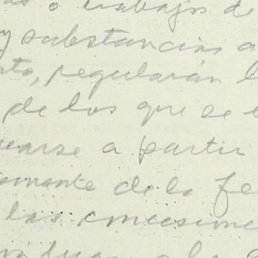 o trabajos de
y substancias a
regularán l
de los que se
a partir
de la fe
las concesione